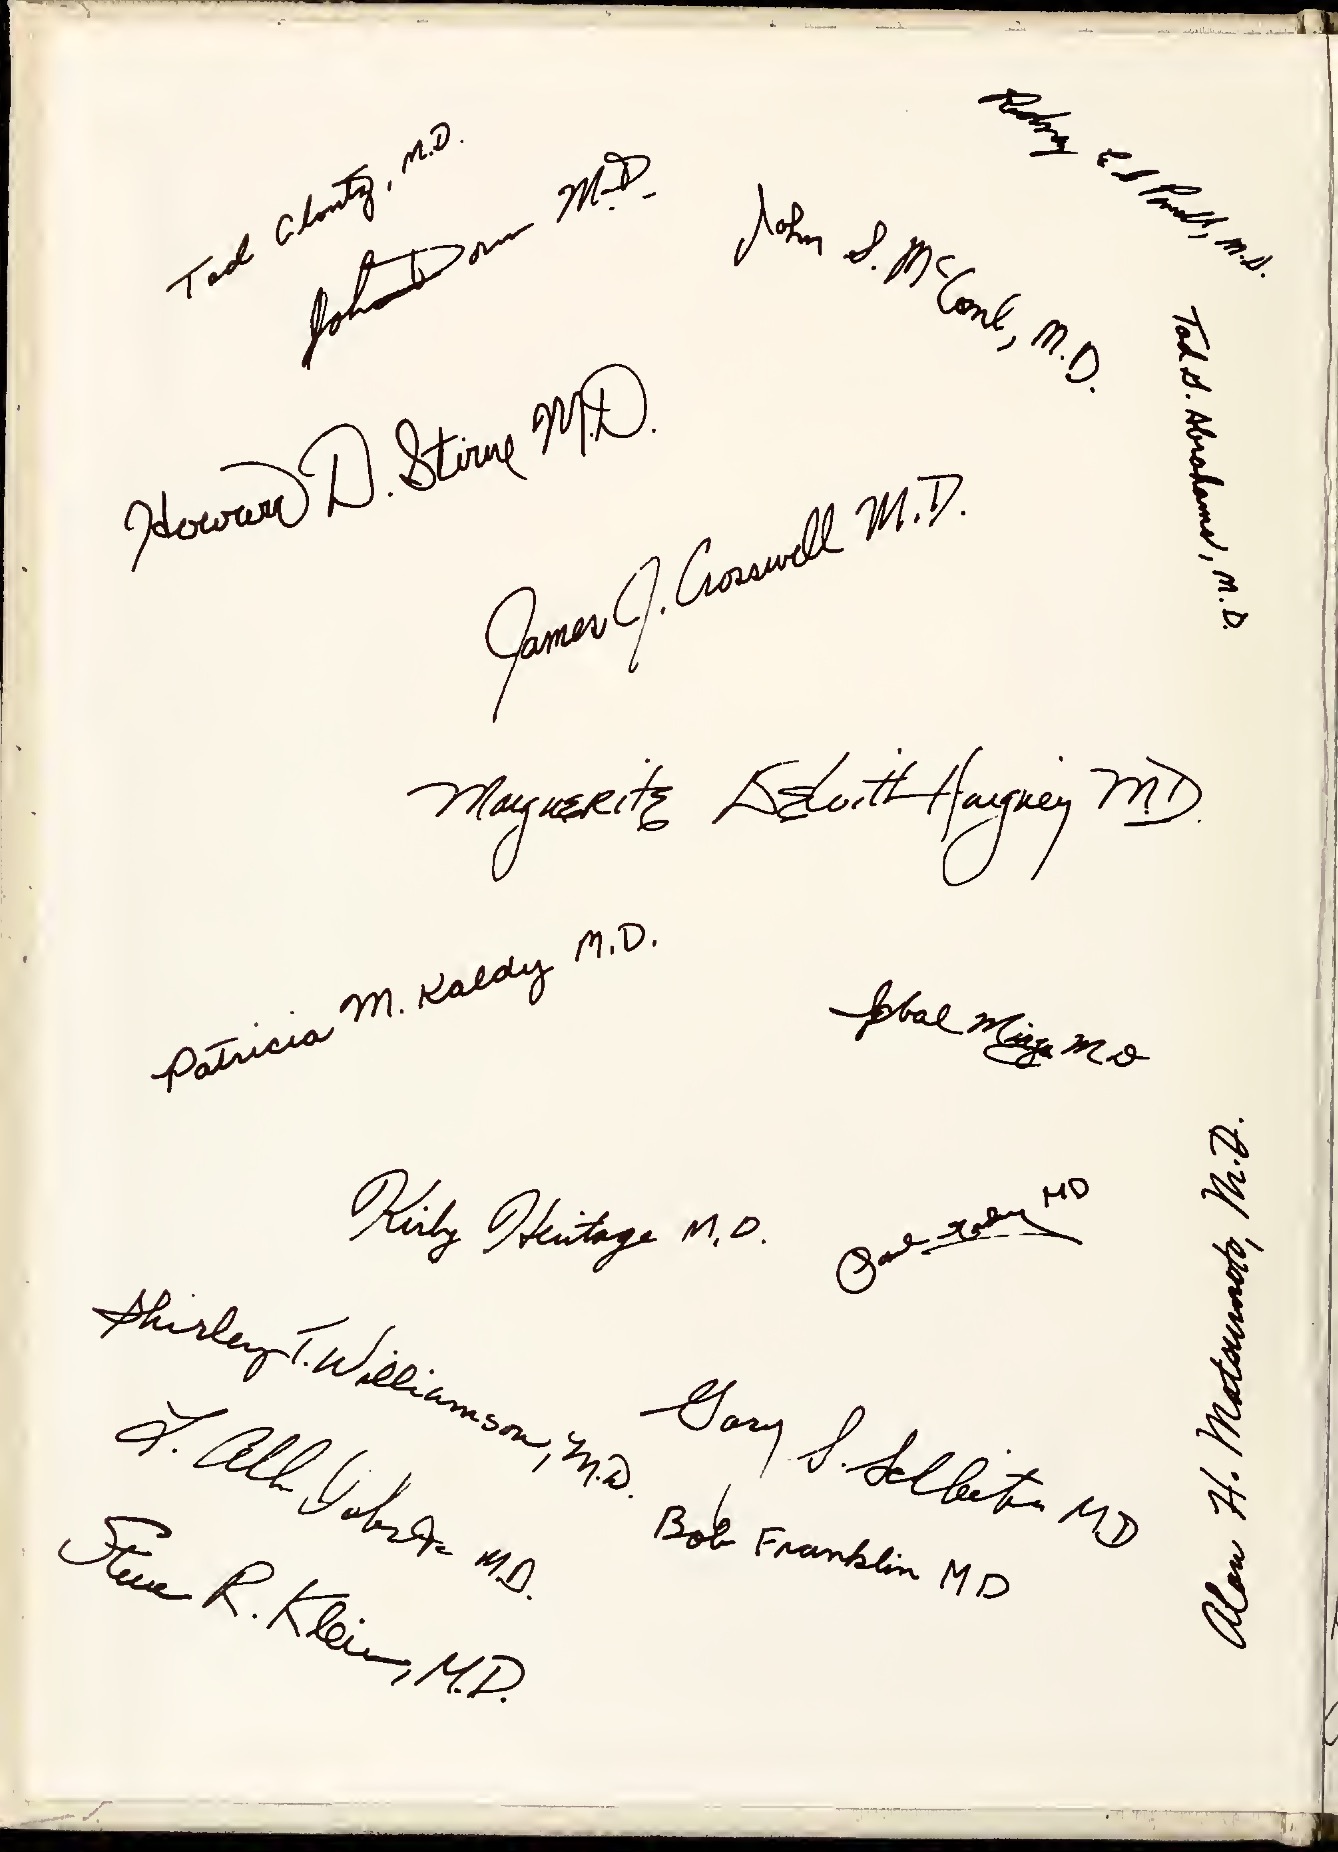 Tad Clontz, M.D.
John Dorn M.D.
John S. McComb, M.D.
Rodney M.D.
Tad S. Abrahams, M.D.
Howard D. Stirne M.D.
James J. Crosswell M.D.
Marguerite DeWitt Haigney M.D.
Patricia M. Kaldy M.D.
Iqbal Mirza MD
Kirby Heritage M.D.
MD
Alan H. Matsumoto, M.D.
Shirley T. Williamson, M.D.
Gary S. MD
M.D.
Bob Franklin MD
Steve R. Klein, M.D.